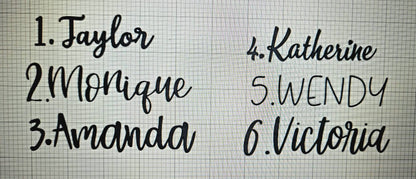 1. Taylor
2. Monique
3. Amanda
4. Katherine
5. WENDY
6. Victoria